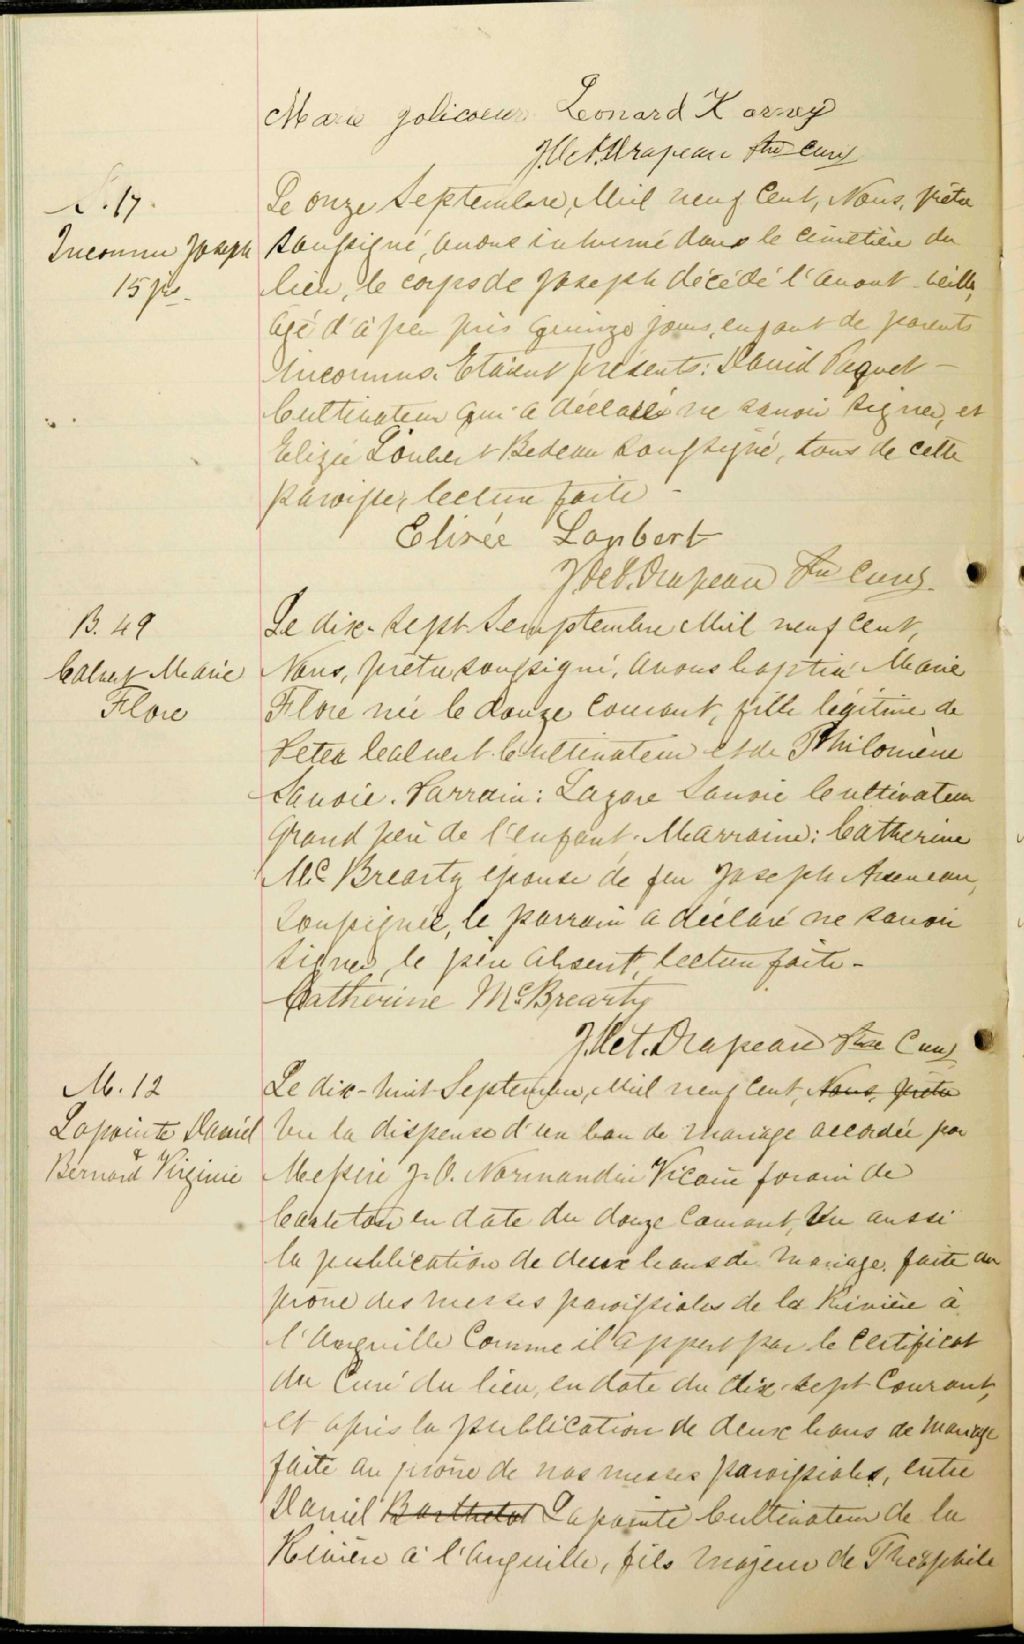 Marie Jolicoeur Leonard Karney
J. Oct. Drapeau Ptre Curé
S. 17.
Inconnu Joseph
15 jrs.
Le onze Septembre, Mil neuf Cent, Nous, prêtre
soussigné, avons inhumé dans le cimetière du
lieu, le corps de Joseph décédé l'avant-veille,
agé d'à peu près quinze jours, enfant de parents
inconnus. Etaient présents: David Paquet -
Cultivateur qui a déclaré ne savoir signer, et
Elizée Bedeau soussigné, tous de cette
paroisse, lecture faite -
Elisée Lapbert
J. Oct. Drapeau Ptre Curé.
B. 49
Calvert Marie
Flore
Le dix-sept Semptembre Mil neuf cent,
Nous, prêtre soussigné, avons baptisé Marie
Flore née le douze Courant, fille légitime de
Peter Calvert Cultivateur et de Philomène
Savoie. Parrain: Lazare Savoie Cultivateur
grand père de l'enfant. Marraine: Catherine
McBrearty épouse de feu Joseph Arseneau,
soussignée, le parrain a déclaré ne savoir
signer, le père absent, lecture faite -
Catherine McBrearty
J. Oct. Drapeau Ptre Curé
M. 12
Lapointe Daniel
&
Bernard Virginie
Le dix-huit Septembre, Mil neuf Cent, Nous, prêtre
Vu la dispense d'un ban de mariage accordée par
Messire J. O. Normandin Vicaire forain de
Carleton en date du douze Courant, Vu aussi
la publication de deux bans de mariage faite au
prône des messes paroissiales de la Rivière à
l'Anguille Comme il appert par le Certificat
du Curé du lieu, en date du dix-sept Courant,
et après la publication de deux bans de mariage
faite au prône de nos messes paroissiales, entre
Daniel Barthelot Lapointe Cultivateur de la
Rivière à l'Anguille, fils majeur de Théophile